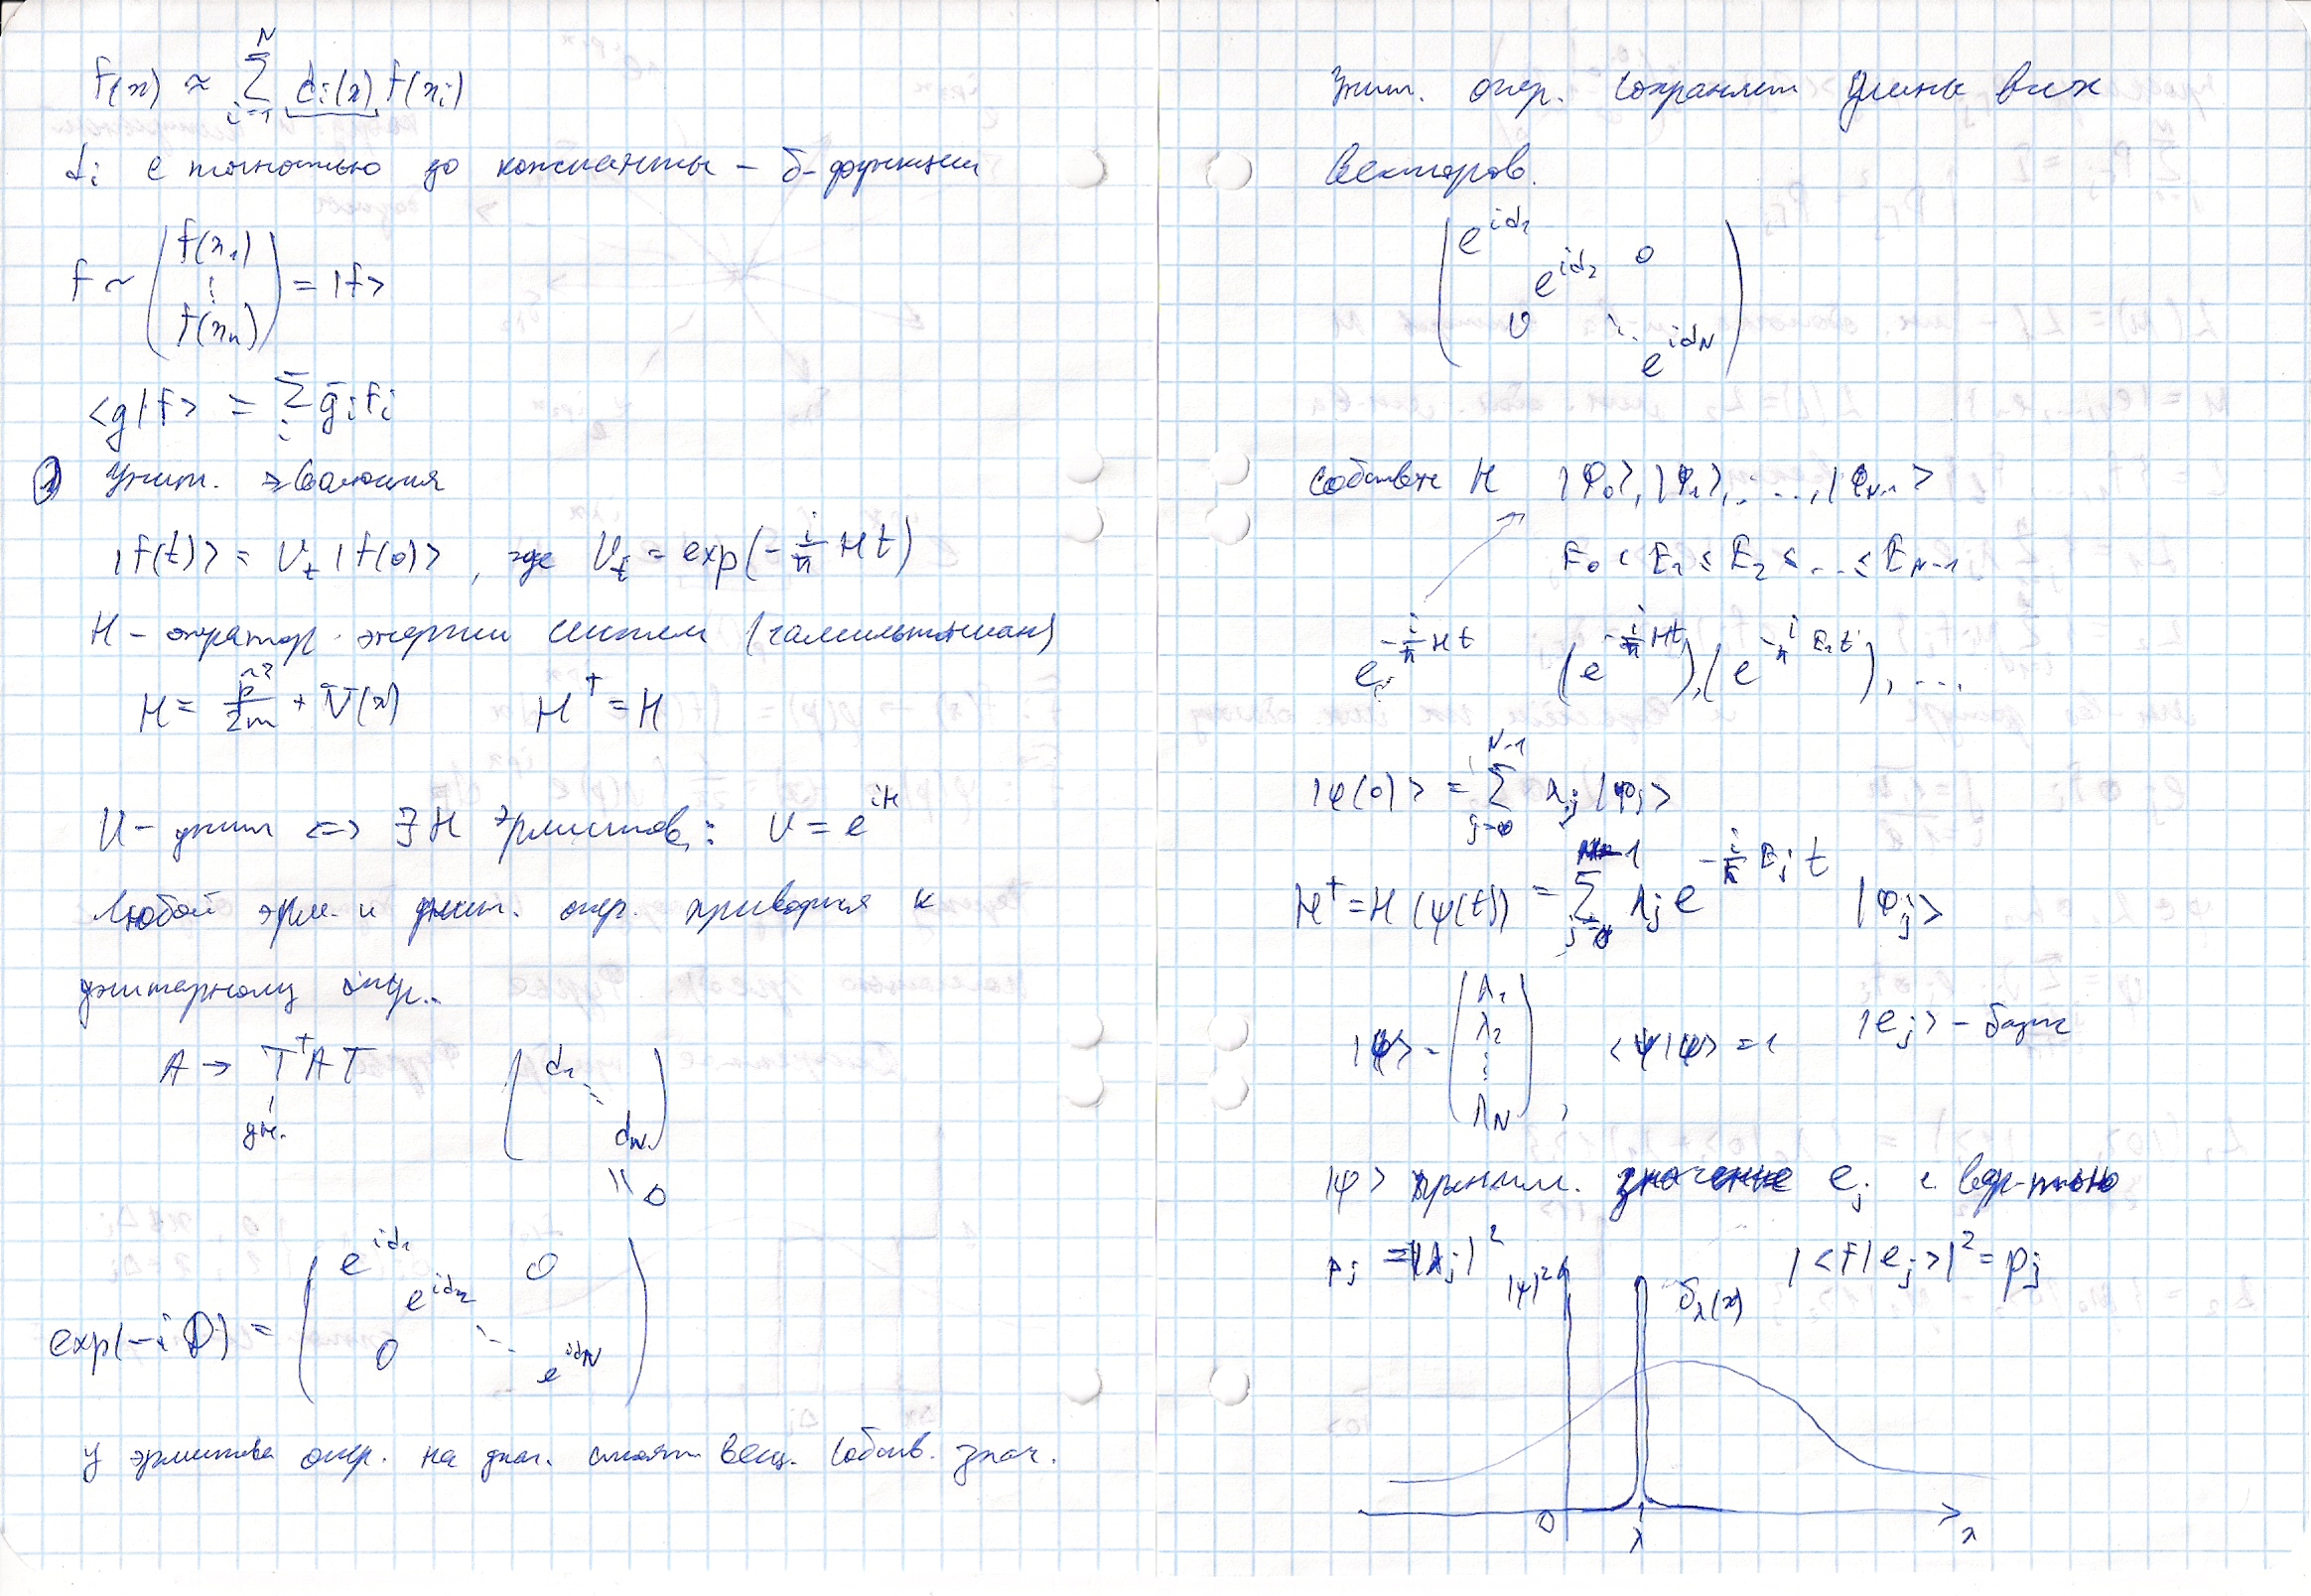 f(x) ≈ Σ_{i=1}^{N} d_i(x) f(x_i)
d_i с точностью до константы – δ-функции
f ~ (f(x_1) ⋮ f(x_n)) = |f>
<g|f> = Σ_i ḡ_i f_i
① Унит. эволюция
|f(t)> = U_t |f(0)>, где U_t = exp(-i/ħ H t)
H – оператор энергии систем (гамильтониан)
H = p̂²/2m + V(x) H† = H
U – унит <=> ∃ H эрмитов: U = e^{iH}
Любой эрм. и унит. опер. приводится к
унитарному опер.
A → T†AT (d_1 ⋱ d_N)
ун. || D
exp(-iD) = (e^{id_1} e^{id_2} 0 0 ⋱ e^{id_N})
У эрмитова опер. на диаг. стоят вещ. собств. знач.
Унит. опер. сохраняет длины всех
векторов.
(e^{id_1} e^{id_2} 0 0 ⋱ e^{id_N})
собствен H |φ_0>, |φ_1>, ..., |φ_{N-1}>
E_0 < E_1 ≤ E_2 ≤ ... ≤ E_{N-1}
e^{-i/ħ H t} (e^{-i/ħ H t}), (e^{-i/ħ E_1 t}), ...
|ψ(0)> = Σ_{j=0}^{N-1} λ_j |φ_j>
H† = H |ψ(t)> = Σ_{j=0}^{N-1} λ_j e^{-i/ħ E_j t} |φ_j>
|ψ> = (λ_1 λ_2 ⋮ λ_N), <ψ|ψ> = 1 |e_j> – базис
|ψ> приним. значение e_j с вер-тью
p_j = |λ_j|² |<f|e_j>|² = p_j
|ψ|² δ_λ(x)
0 λ x